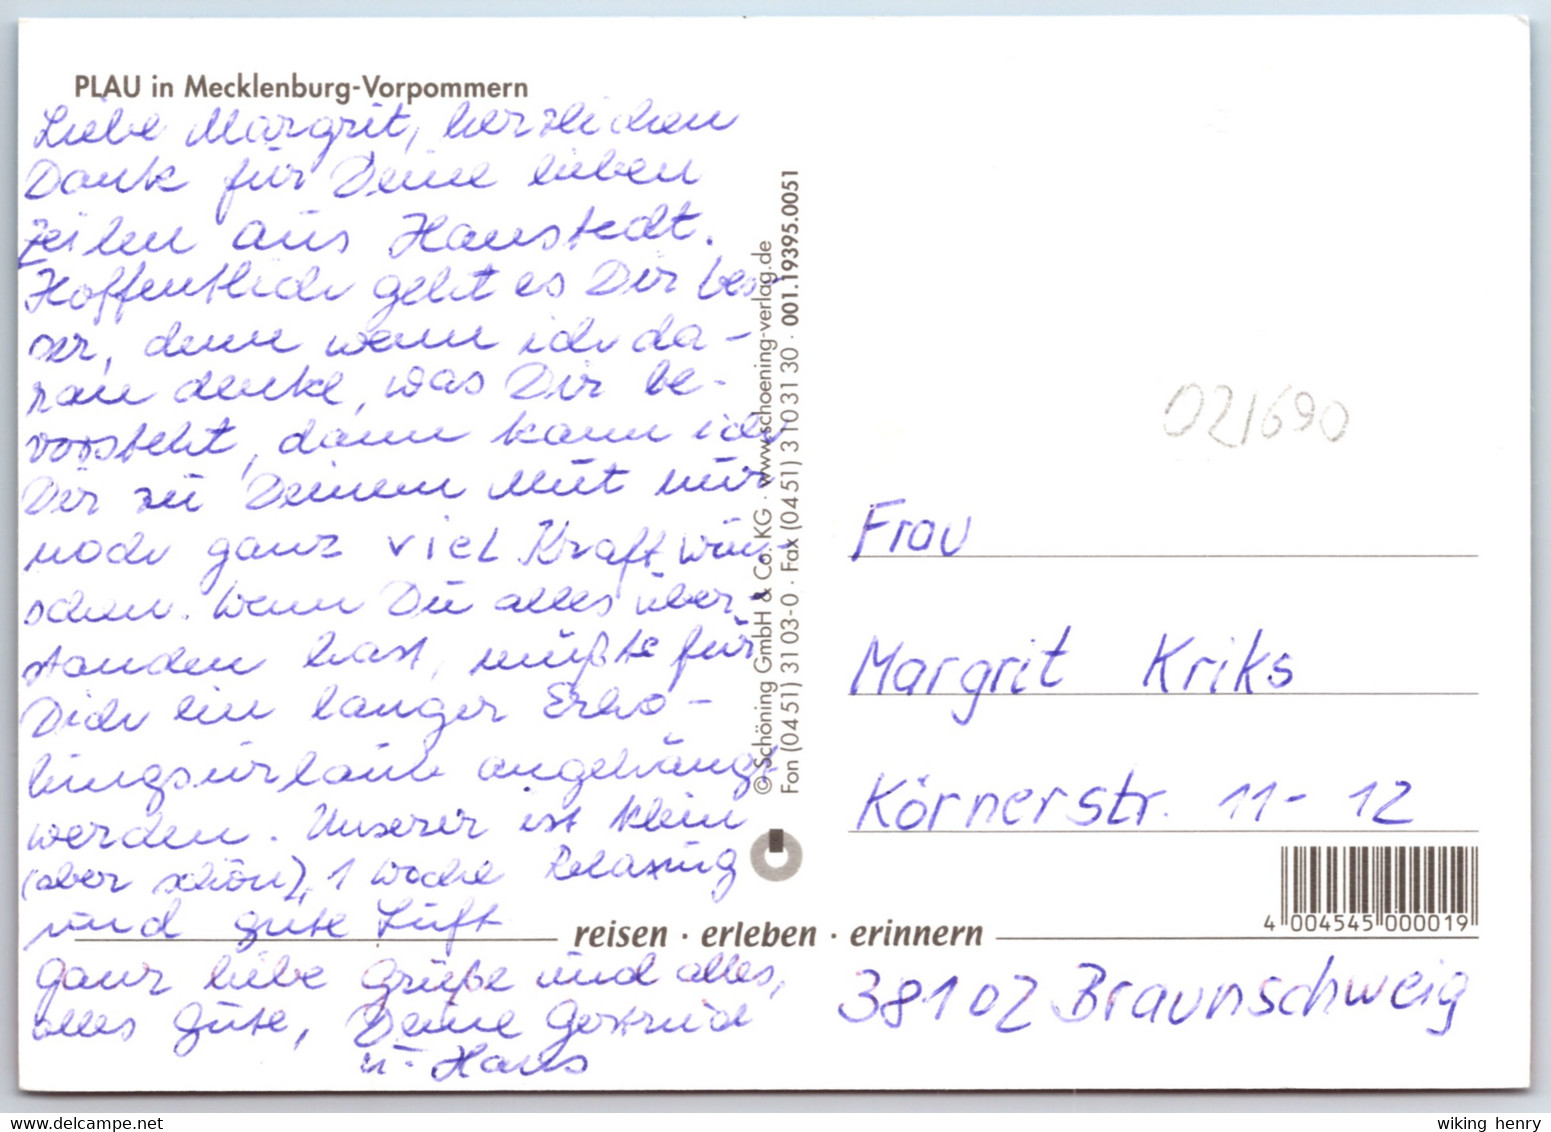 PLAU in Mecklenburg-Vorpommern
Liebe Margrit, herzlichen
Dank für Deine lieben
Zeilen aus Hanstedt.
Hoffentlich geht es Dir bes-
ser, denn wenn ich da-
ran denke, was Dir be-
vorsteht, dann kann ich
Dir zu Deinem Mut nur
noch ganz viel Kraft wün-
schen. Wenn Du alles über-
standen hast, müßte für
Dich ein langer Erho-
lungsurlaub angehängt
werden. Unserer ist klein
(aber schön), 1 Woche Relaxing
und gute Luft
Ganz liebe Grüße und alles,
alles Gute, Deine Gertrud
u. Hans
© Schöning GmbH & Co. KG · www.schoening-verlag.de
Fon (04 51) 31 03-0 · Fax (04 51) 3 10 31 30 · 001.19395.0051
reisen · erleben · erinnern
021690
Frau
Margrit Kriks
Körnerstr. 11-12
4 004545 000019
38102 Braunschweig
wiking henry